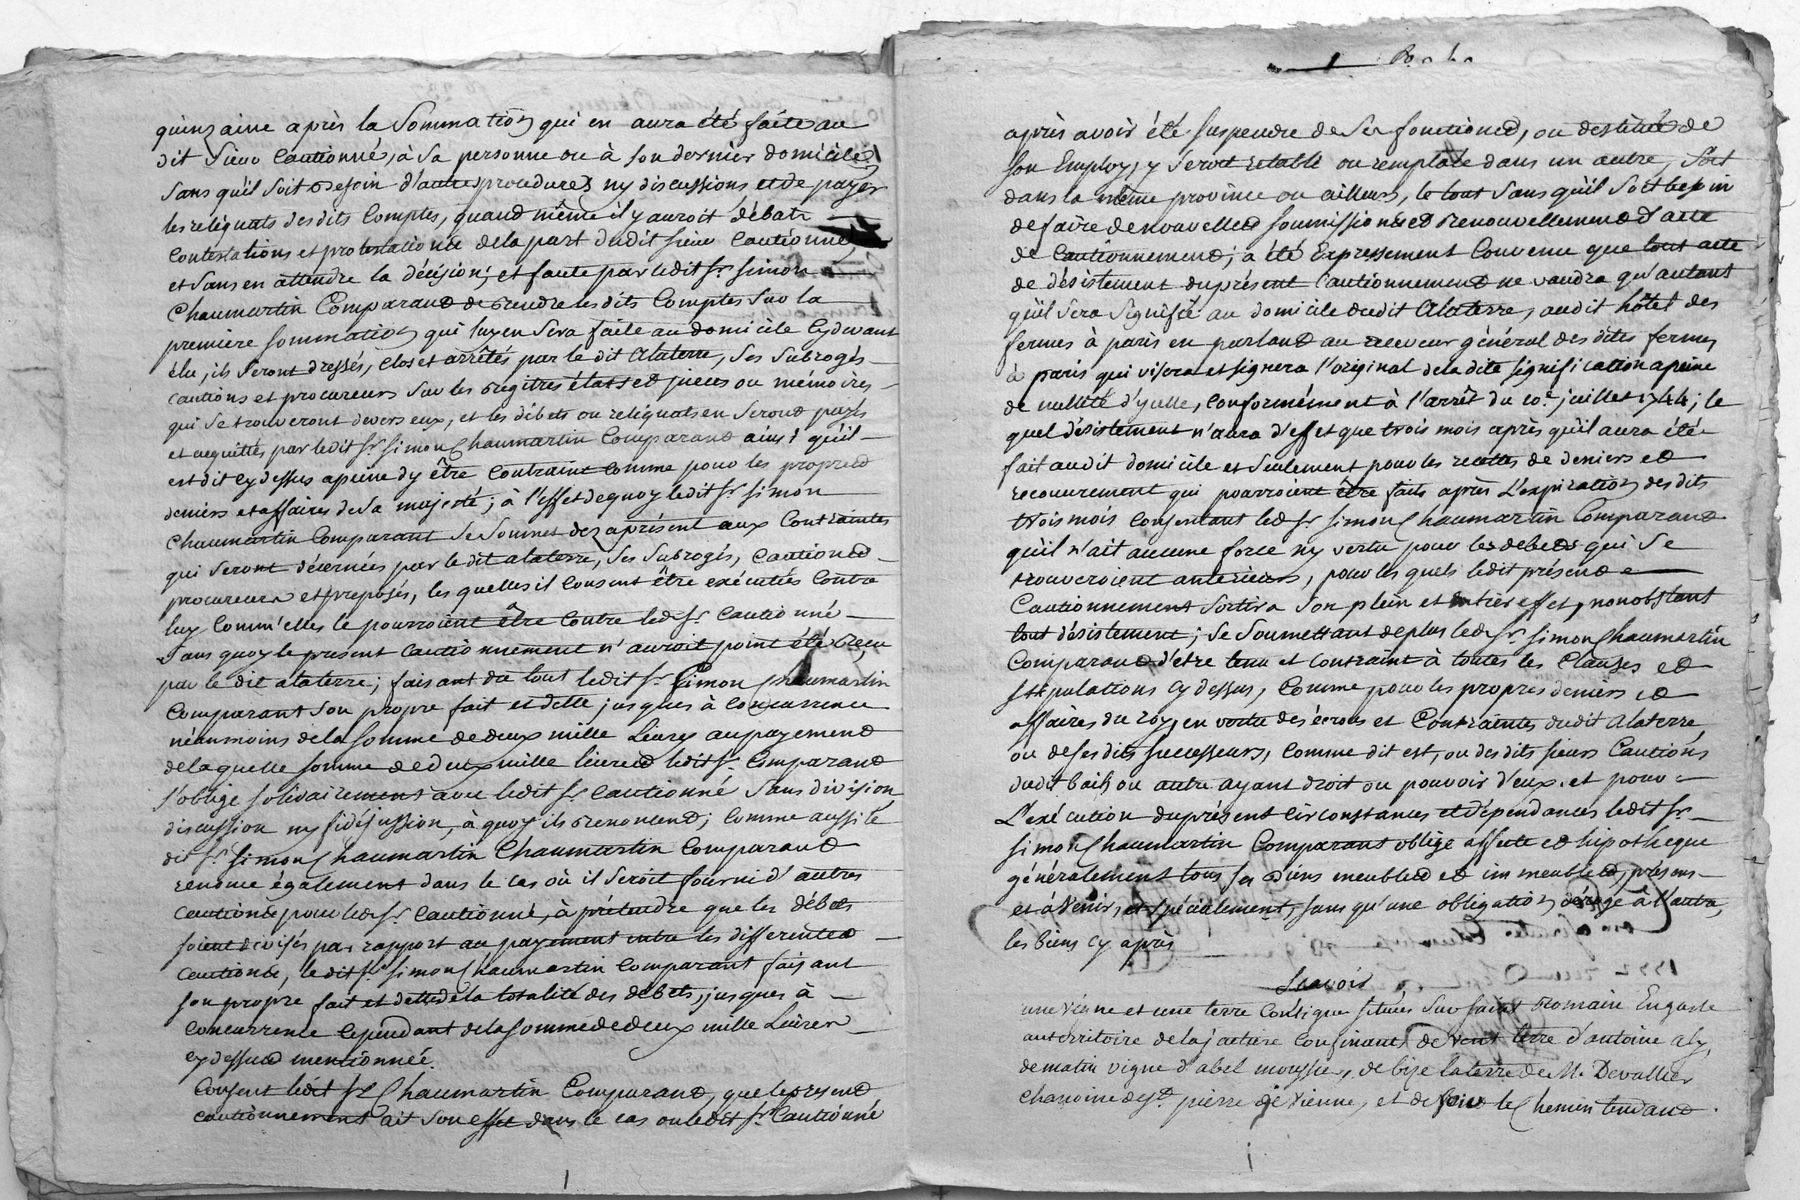 quinzaine après la Sommation qui en aura été faite au
dit Sieur Cautionné, à Sa personne ou à son dernier domicile
Sans qu'il soit besoin d'autres procedures ny discussions et de payer
les réliquats desdits Comptes, quand même il y auroit débats
Contestations et protestations de la part dudit sieur Cautionné
et Sans en attendre la décision; et faute par ledit Sr. Simon
Chaumartin Comparand de rendre lesdits Comptes Sur la
premiere Sommation qui luy en Sera faite au domicile Cy devant
élu, ils Seront dressés, clos et arrêtés par le dit alaterre, Ses Subrogés
cautions et procureurs Sur les régitres états et pieces ou mémoires
qui Se trouveront devers eux, et les débets ou reliquats en Seront payés
et acquittés par ledit Sr. Simon Chaumartin Comparant ainsi qu'il
est dit cy dessus a peine dy être Contraint Comme pour les propres
deniers et affaires de Sa majesté; à l'effet de quoy ledit Sr. Simon
Chaumartin Comparant Se Soumet dez aprésent aux Contraintes
qui Seront décernées par le dit alaterre, Ses Subrogés, Cautions
procureurs et préposés, les quelles il Consent être exécutées Contre
luy Comm'elles le pourroient être Contre ledit Sr. Cautionné
Sans quoy le present Cautionnement n'auroit point été reçu
par le dit alaterre; faisant du tout ledit Sr. Simon Chaumartin
Comparant Son propre fait et dette jusques à Concurrence
néanmoins de la Somme de deux mille Livres au payement
de laquelle somme de deux mille livres ledit Sr. Comparand
s'oblige solidairement avec ledit Sr. Cautionné Sans division
discussion ny fidéjussion, à quoy ils renoncent; Comme aussi le
dit Sr. Simon Chaumartin Chaumartin Comparand
renonce également dans le Cas où il Seroit fourni d'autres
Cautions pour ledit Sr. Cautionné, à prétendre que les débets
soient divisés par rapport au payement entre les differentes
Cautions, le dit Sr. Simon Chaumartin Comparant faisant
Son propre fait et dette de la totalité des débets, jusques à
Concurrence Cependant de la Somme de deux mille Livres
cy dessus mentionnée.
Consent ledit Sr. Chaumartin Comparand, que le present
cautionnement ait Son effet dans le cas ou ledit Sr. Cautionné
après avoir été suspendre de Ses fonctions, ou destitué de
Son Employ, y Seroit retabli ou remplacé dans un autre, Soit
dans la même province ou ailleurs, le tout Sans qu'il Soit besoin
de faire de nouvelles soumissions et renouvellement d'acte
de Cautionnement; a été Expressement Convenu que tout acte
de désistement du présent Cautionnement ne vaudra qu'autant
qu'il Sera Signifié au domicile dudit Alaterre, audit hôtel des
fermes à paris en parlant au receveur général des dites fermes
à paris qui visera et signera l'original de la dite signification apeine
de nullité d'ycelle, Conformément à l'arrêt du 10e. juillet 1744; le
quel désistement n'aura d'effet que trois mois après qu'il aura été
fait audit domicile et Seulement pour les recettes de deniers et
recouvrement qui pourroient être faits après L'expiration desdits
trois mois Consentant led. Sr. Simon Chaumartin Comparant
qu'il n'ait aucune force ny vertu pour les debets qui Se
trouveroient anterieurs, pour les quels ledit présent
Cautionnement Sortira Son plein et entier effet, nonobstant
tout désistement; Se Soumettant de plus led. Sr. Simon Chaumartin
Comparand d'etre tenu et Contraint à toutes les Clauses et
stipulations Cy dessus, Comme pour les propres deniers et
affaires du roy, en vertu des écrous et Contraintes dudit Alaterre,
ou de Ses dits successeurs, Comme dit est, ou des dits sieurs Cautions
dudit bail, ou autre ayant droit ou pouvoir d'eux. et pour
L'exécution du présent Circonstances et dépendances ledit Sr.
Simon Chaumartin Comparant oblige affecte et hipotheque
généralement tous Ses Biens meubles et immeubles, présens
et à Venir, et Spécialement, Sans qu'une obligation déroge à l'autre,
les biens Cy après
Scavoir
une vigne et une terre Contigue situées Sur saint Romain Engaste
au territoire de la Confinant de vent terre d'antoine
de matin vigne d'abel, de bize la terre de M. Devallier
chanoine de St. pierre de Vienne, et de soir le Chemin tendand